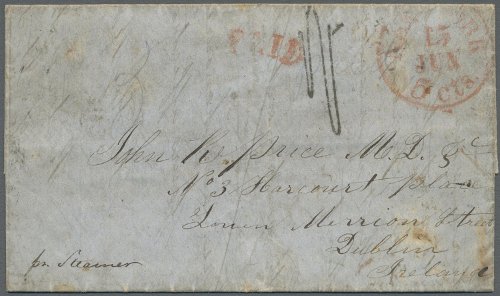 PAID
NEW YORK
15
JUN
5 cts
John W. Price M.D. &c
No 3 Harcourt place
Lower Merrion Street
Dublin
Ireland
pr. Steamer